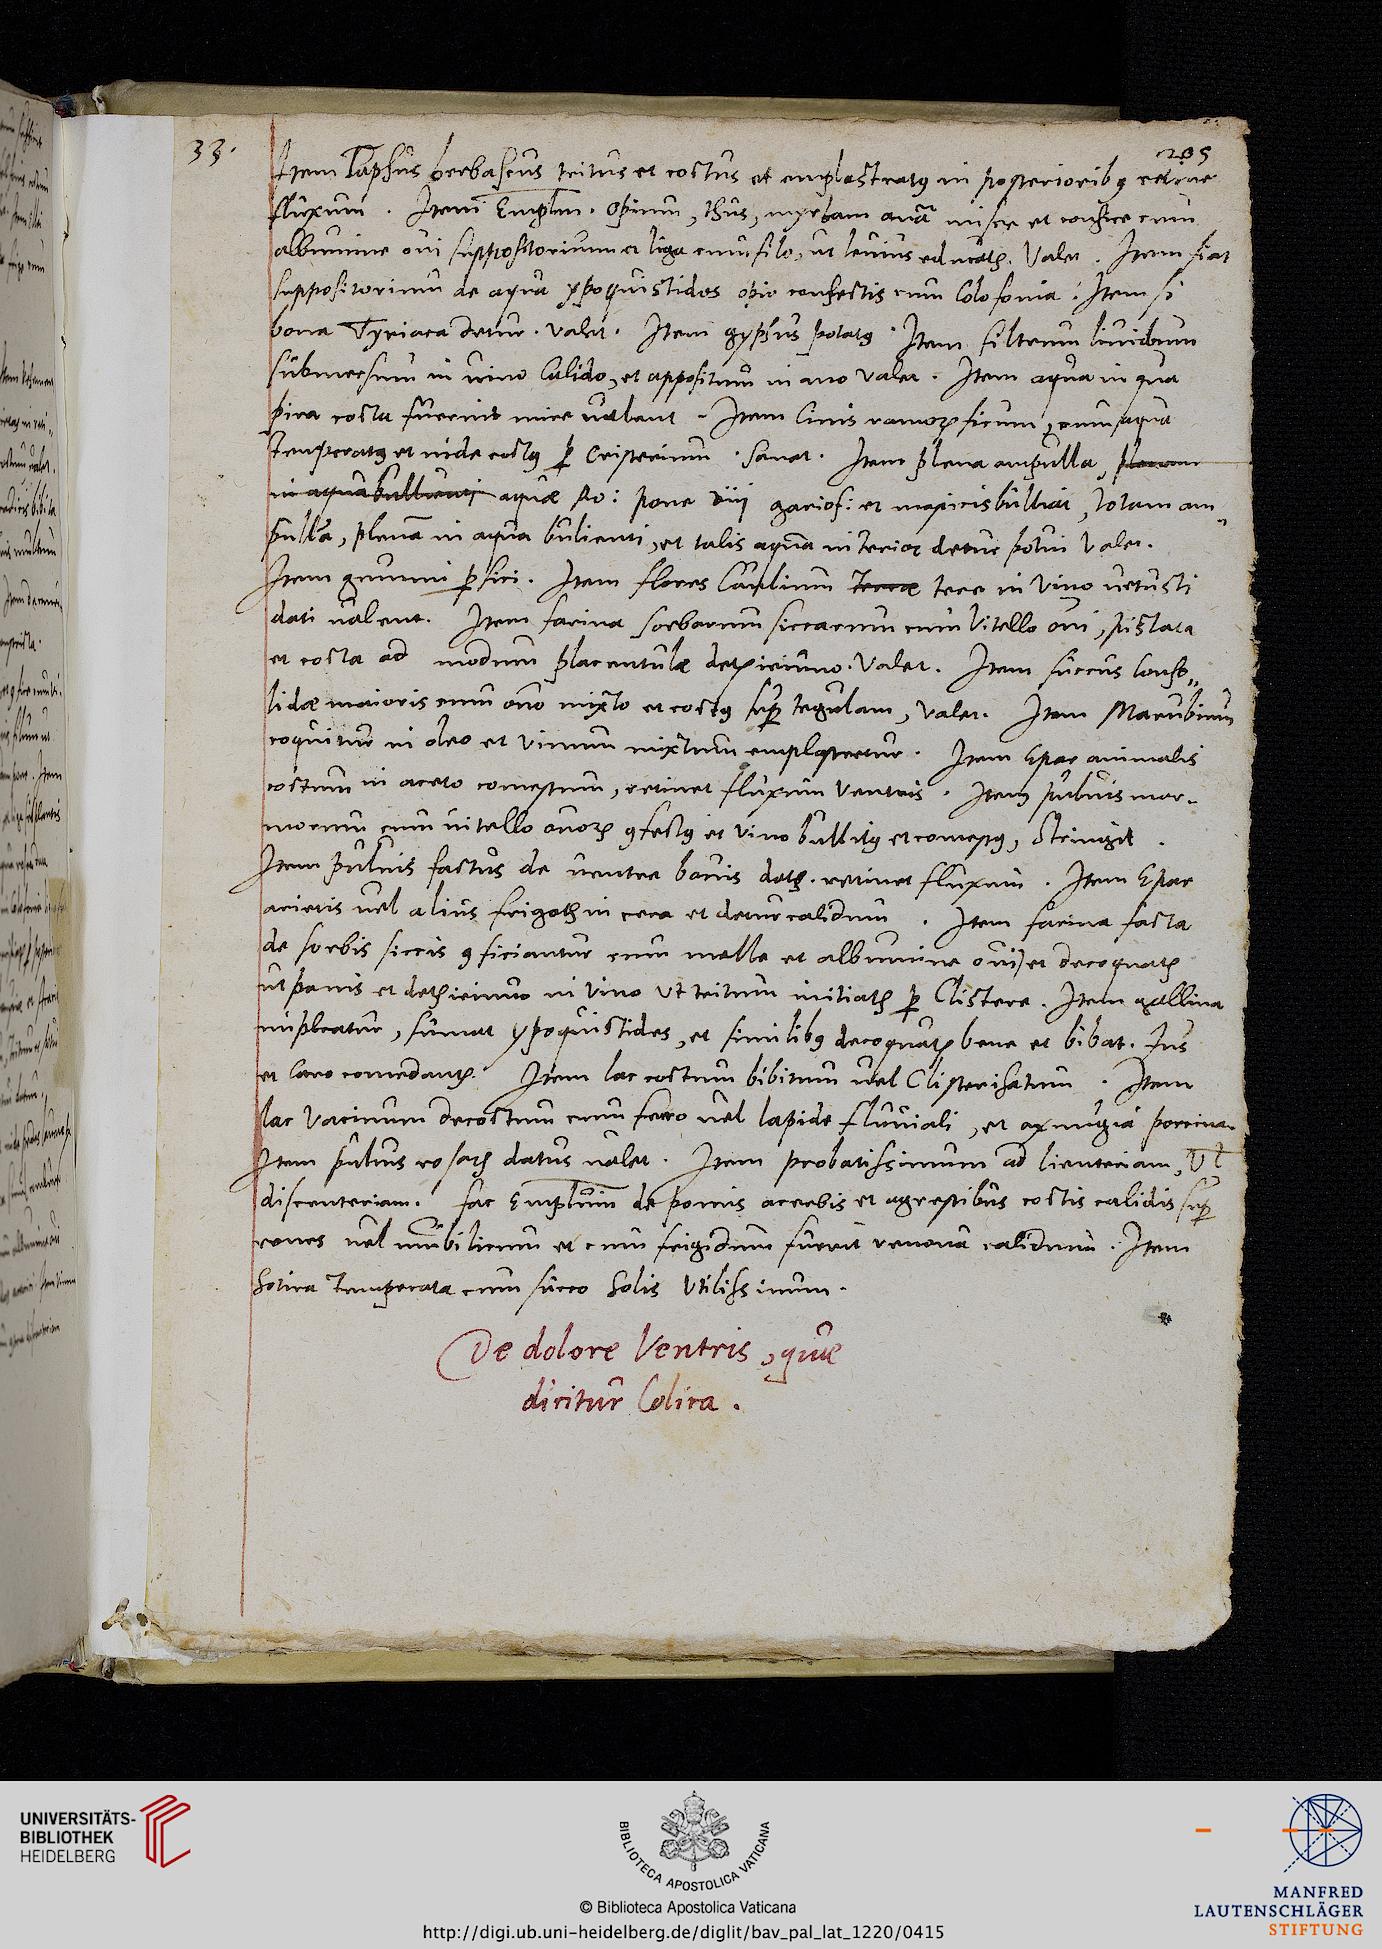 33.
205
Item Tapsus berbascus tritus et coctus et emplastratꝰ in posterioribꝰ retine
fluxum. Item Emplm. Opium, thus, myrtam anā misce et confice cum
albumine ovi suppositorium et liga cum filo, ut levius educatꝛ. Valet. Item fiat
suppositorium de aqua ypoquistidos opio confectis cum Colofonia. Item si
bona Tyriaca detur. valet. Item gypsus potatꝰ. Item filtrum lividum
submersum in vino Calido, et appositum in ano valet. Item aqua in qua
pira cocta fuerint mire valent. Item Cinis ramoꝝ ficum, cum aqua
temperatꝰ et inde coctꝰ ꝑ Cristerium. Sanat. Item plena ampulla, plenam
in aqua bullienti aquæ Ro: pone viij gariof: et masticis bulliat, totam am„
pullā, plenā in aqua bulienti, et talis aqua interior detur potui valet.
Item gummi ꝑsici. Item flores Cardinum terræ tere in vino vetusti
dati valent. Item farina sorbarum siccarum cum vitello ovi, pistata
et cocta ad modum placentulæ detꝛ ieiuno. valet. Item succus conso„
lidæ maioris cum ovo mixto et coctꝰ suꝑ tegulam, valet. Item Marubium
coquitur in oleo et vinum mixtum emplastretur. Item Epar animalis
coctum in aceto comestum, retinet fluxum ventris. Item pulvis mar-
morum cum vitello ovoꝝ ꝯfectꝰ et vino bullitꝰ et comestꝰ, stringit.
Item pulvis factus de ventre bovis datꝰ. retinet fluxum. Item Epar
arietis vel alius frigatꝛ in cera et detur calidum. Item farina facta
de sorbis siccis ꝯficiantur cum melle et albumine ovi) et decoquatꝛ
ut panis et detꝛ ieiuno in vino vt tritum initiatꝛ ꝑ Clistere. Item gallina
impleatur, sumat ypoquistides, et similibꝰ decoquatꝛ bene et bibat. Ius
et Caro comedantꝛ. Item lac coctum bibitum vel Clisterisatum. Item
lac vaccinum decoctum cum ferro vel lapide fluviali, et axungia porcina.
Item pulvis rosaꝝ datus valet. Item probatissimum ad lienteriam, vl
discenteriam. fac Emplūm de pomis acerbis et agrestibus coctis calidis suꝑ
renes vel umbilicum et cum frigidum fuerit renova calidum. Item
Sotira temperata cum succo Solis utilissimum.
De dolore Ventris, quæ
dicitur Colica.
UNIVERSITÄTS-
BIBLIOTHEK
HEIDELBERG
BIBLIOTECA APOSTOLICA VATICANA
© Biblioteca Apostolica Vaticana
http://digi.ub.uni-heidelberg.de/diglit/bav_pal_lat_1220/0415
MANFRED
LAUTENSCHLÄGER
STIFTUNG